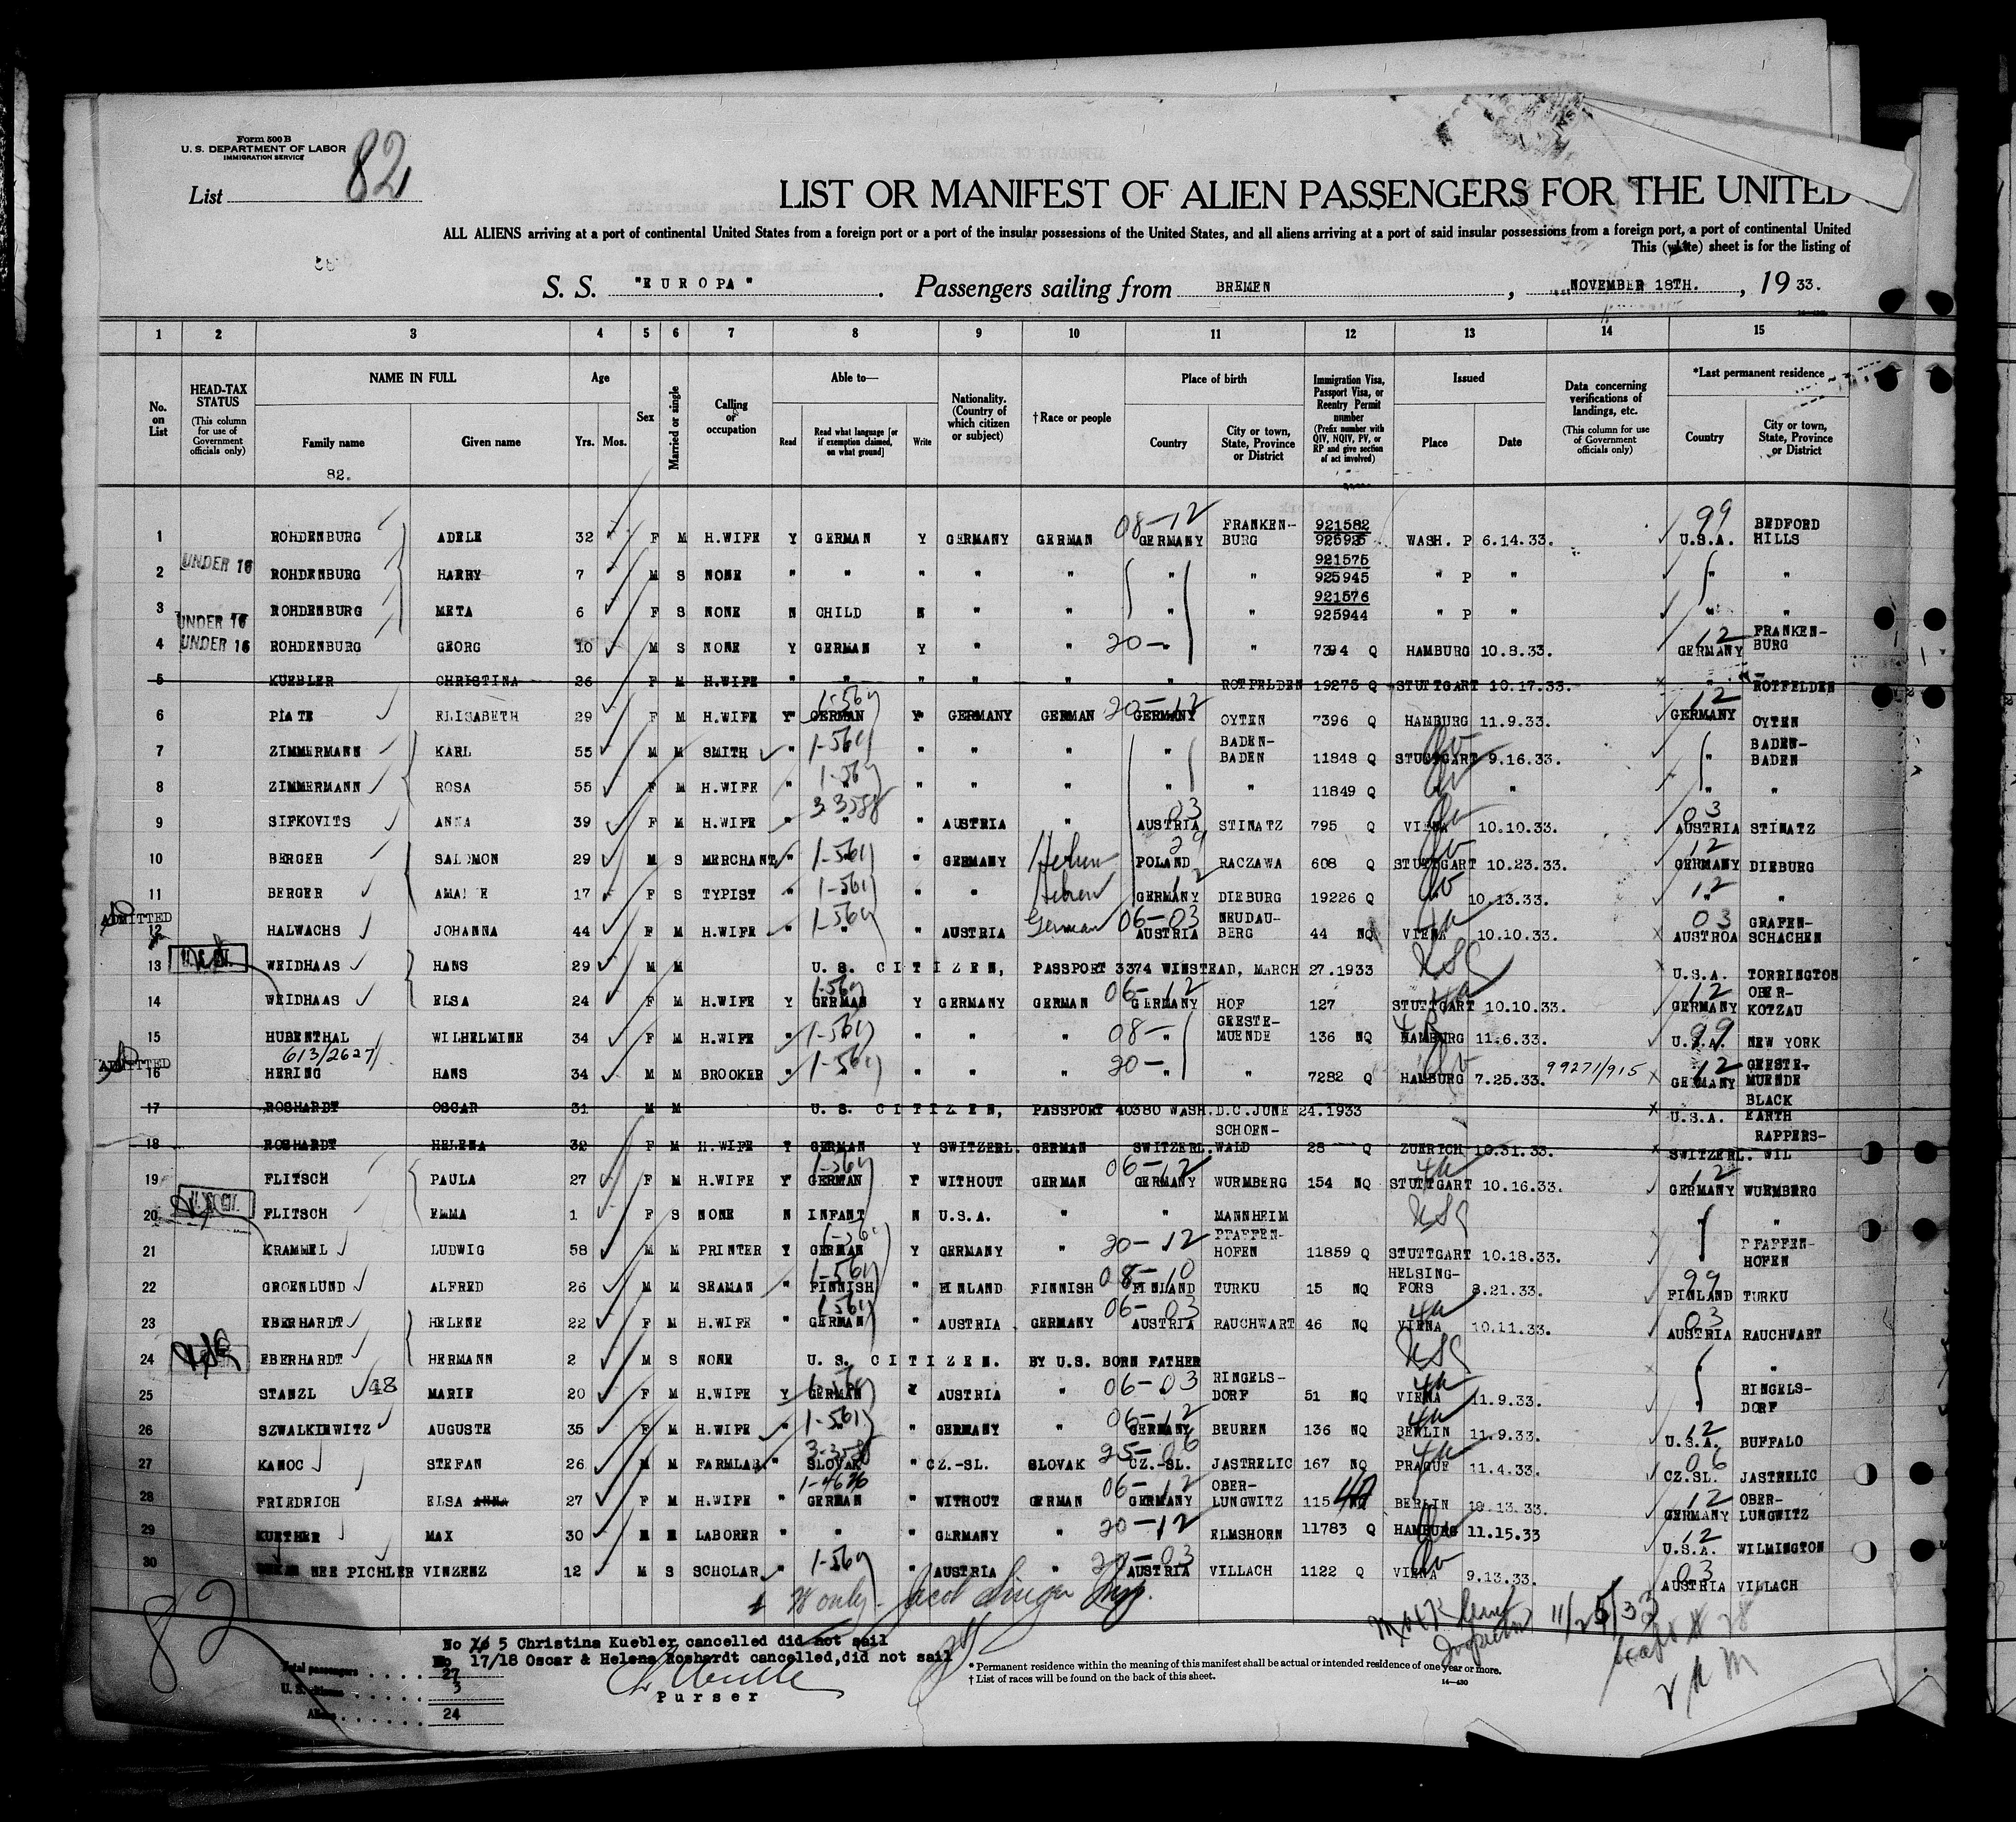 Form 500 B
U. S. DEPARTMENT OF LABOR
IMMIGRATION SERVICE
List 82
LIST OR MANIFEST OF ALIEN PASSENGERS FOR THE UNITED
ALL ALIENS arriving at a port of continental United States from a foreign port or a port of the insular possessions of the United States, and all aliens arriving at a port of said insular possessions from a foreign port, a port of continental United
This (white) sheet is for the listing of
S. S. "EUROPA". Passengers sailing from BREMEN, NOVEMBER 18TH., 1933.
1 2 3 4 5 6 7 8 9 10 11 12 13 14 15
No. on List
HEAD-TAX STATUS
(This column for use of Government officials only)
NAME IN FULL
Family name
Given name
82.
Age
Yrs. Mos.
Sex
Married or single
Calling or occupation
Able to—
Read
Read what language [or if exemption claimed, on what ground]
Write
Nationality. (Country of which citizen or subject)
† Race or people
Place of birth
Country
City or town, State, Province or District
Immigration Visa, Passport Visa, or Reentry Permit number
(Prefix number with QIV, NQIV, PV, or RP and give section of act involved)
Issued
Place
Date
Data concerning verifications of landings, etc.
(This column for use of Government officials only)
*Last permanent residence
Country
City or town, State, Province or District
1 ROHDENBURG ADELE 32 F M H.WIFE Y GERMAN Y GERMANY GERMAN 08-12 GERMANY FRANKEN-BURG 921582 925925 WASH. P 6.14.33. 99 U.S.A. BEDFORD HILLS
UNDER 16
2 ROHDENBURG HARRY 7 M S NONE " " " " " " " 921575 925945 " P " " "
3 ROHDENBURG META 6 F S NONE N CHILD N " " " " 921576 925944 " P " "
UNDER 16
UNDER 16
4 ROHDENBURG GEORG 10 M S NONE Y GERMAN Y " " 20- " " 7394 Q HAMBURG 10.8.33. 12 GERMANY FRANKEN-BURG
5 KUEBLER CHRISTINA 26 F M H.WIFE " " " " " " ROTFELDEN 19275 Q STUTTGART 10.17.33. " ROTFELDEN
6 PIATE ELISABETH 29 F M H.WIFE Y GERMAN Y GERMANY GERMAN 20-12 GERMANY OYTEN 7396 Q HAMBURG 11.9.33. 12 GERMANY OYTEN
7 ZIMMERMANN KARL 55 M M SMITH " " " " " BADEN-BADEN 11848 Q STUTTGART 9.16.33. " BADEN-BADEN
8 ZIMMERMANN ROSA 55 F M H.WIFE " " " " " " " 11849 Q " " "
9 SIFKOVITS ANNA 39 F M H.WIFE " " " AUSTRIA " 03 AUSTRIA STINATZ 795 Q VIENA 10.10.33. 03 AUSTRIA STINATZ
10 BERGER SALOMON 29 M S MERCHANT " " " GERMANY Hebrew POLAND RACZAWA 608 Q STUTTGART 10.23.33. 12 GERMANY DIEBURG
11 BERGER 17 F S TYPIST " " " Hebrew 12 GERMANY DIEBURG 19226 Q 10.13.33. 12 " "
ADMITTED
12 HALWACHS JOHANNA 44 F M H.WIFE " " " AUSTRIA German 06-03 AUSTRIA NEUDAU-BERG 44 NQ VIENA 10.10.33. 03 AUSTROA GRAFEN-SCHACHEN
13 WEIDHAAS HANS 29 M M U. S. CITIZEN, PASSPORT 3374 WINSTEAD, MARCH 27.1933 USC U.S.A. TORRINGTON
14 WEIDHAAS ELSA 24 F M H.WIFE Y GERMAN Y GERMANY GERMAN 06-12 GERMANY HOF 127 STUTTGART 10.10.33. 12 GERMANY OBER-KOTZAU
15 HUBENTHAL WILHELMINE 34 F M H.WIFE " " " " " 08- " GEESTE-MUENDE 136 NQ HAMBURG 11.6.33. 99 U.S.A. NEW YORK
613/2627
ADMITTED
16 HERING HANS 34 M M BROOKER " " " " " 20- " " 7282 Q HAMBURG 7.25.33. 99271/915 12 GERMANY GEESTE-MUENDE
17 ROSHARDT OSCAR 31 M M U. S. CITIZEN, PASSPORT 40380 WASH.D.C.JUNE 24.1933 U.S.A. BLACK EARTH
18 ROSHARDT HELENA 32 F M H.WIFE Y GERMAN Y SWITZERL. GERMAN SWITZERL. SCHOEN-WALD 28 Q ZUERICH 10.31.33. SWITZERL. RAPPERS-WIL
19 FLITSCH PAULA 27 F M H.WIFE Y GERMAN Y WITHOUT GERMAN 06-12 GERMANY WURMBERG 154 NQ STUTTGART 10.16.33. 12 GERMANY WURMBERG
20 FLITSCH EMMA 1 F S NONE N INFANT N U.S.A. " " MANNHEIM USC " "
21 KRAMMEL LUDWIG 58 M M PRINTER Y GERMAN Y GERMANY " 20-12 PFAFFEN-HOFEN 11859 Q STUTTGART 10.18.33. PFAFFEN-HOFEN
22 GROENLUND ALFRED 26 M M SEAMAN " FINNISH " FINLAND FINNISH 08-10 FINLAND TURKU 15 NQ HELSING-FORS 8.21.33. 99 FINLAND TURKU
23 EBERHARDT HELENE 22 F M H.WIFE " GERMAN " AUSTRIA GERMANY 06-03 AUSTRIA RAUCHWART 46 NQ VIENA 10.11.33. 03 AUSTRIA RAUCHWART
24 EBERHARDT HERMANN 2 M S NONE U. S. CITIZEN. BY U.S. BORN FATHER USC "
25 STANZL 48 MARIE 20 F M H.WIFE Y GERMAN Y AUSTRIA " 06-03 RINGELS-DORF 51 NQ VIENA 11.9.33. RINGELS-DORF
26 SZWALKIEWITZ AUGUSTE 35 F M H.WIFE " " " GERMANY " 06-12 GERMANY BEUREN 136 NQ BERLIN 11.9.33. 12 U.S.A. BUFFALO
27 KANOC STEFAN 26 M M FARMLAB " SLOVAK " CZ.-SL. SLOVAK 25-06 CZ.-SL. JASTRELIC 167 NQ PRAGUE 11.4.33. 06 CZ.SL. JASTRELIC
28 FRIEDRICH ELSA ANNA 27 F M H.WIFE " GERMAN " WITHOUT GERMAN 06-12 GERMANY OBER-LUNGWITZ 115 NQ BERLIN 10.13.33. 12 GERMANY OBER-LUNGWITZ
29 KUETHER MAX 30 M M LABORER " " " GERMANY " 20-12 ELMSHORN 11783 Q HAMBURG 11.15.33 12 U.S.A. WILMINGTON
30 NEE PICHLER VINZENZ 12 M S SCHOLAR " " AUSTRIA " 20-03 AUSTRIA VILLACH 1122 Q VIENA 9.13.33. 03 AUSTRIA VILLACH
82
11/25/33
No 5 Christina Kuebler cancelled did not sail
No 17/18 Oscar & Helene Roshardt cancelled,did not sail
Total passengers 27
U. S. citizens 3
Aliens 24
Purser
* Permanent residence within the meaning of this manifest shall be actual or intended residence of one year or more.
† List of races will be found on the back of this sheet.
14—430